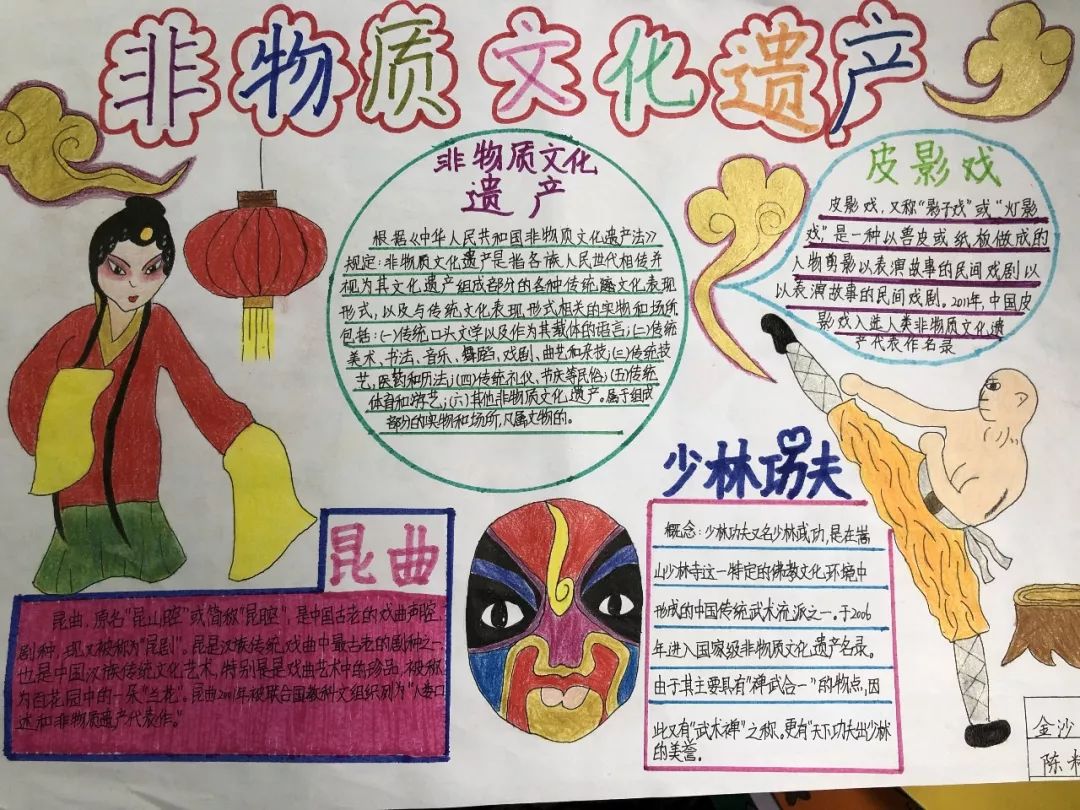 非物质文化遗产
非物质文化
遗产
根据《中华人民共和国非物质文化遗产法》
规定:非物质文化遗产是指各族人民世代相传并
视为其文化遗产组成部分的各种传统文化表现
形式,以及与传统文化表现形式相关的实物和场所
包括:(一)传统口头文学以及作为其载体的语言;(二)传统
美术、书法、音乐、舞蹈、戏剧、曲艺和杂技;(三)传统技
艺,医药和历法;(四)传统礼仪、节庆等民俗;(五)传统
体育和游艺;(六)其他非物质文化遗产。属于组成
部分的实物和场所,凡属文物的。
皮影戏
皮影戏,又称“影子戏”或“灯影
戏”是一种以兽皮或纸板做成的
人物剪影以表演故事的民间戏剧以
以表演故事的民间戏剧。2011年,中国皮
影戏入选人类非物质文化遗
产代表作名录
少林功夫
概念:少林功夫又名少林武功,是在嵩
山少林寺这一特定的佛教文化环境中
形成的中国传统武术流派之一。于2006
年进入国家级非物质文化遗产名录。
由于其主要具有“禅武合一”的物点,因
此又有“武术禅”之称。更有“天下功夫出少林
的美誉。
昆曲
昆曲,原名“昆山腔”或简称“昆腔”,是中国古老的戏曲声腔
剧种,现又被称为“昆剧”。昆是汉族传统戏曲中最古老的剧种之一
也是中国汉族传统文化艺术,特别是是戏曲艺术中的珍品,被称
为百花园中的一朵“兰花”。昆曲2001年被联合国教科文组织列为“人类口
述和非物质遗产代表作。”
金沙
陈